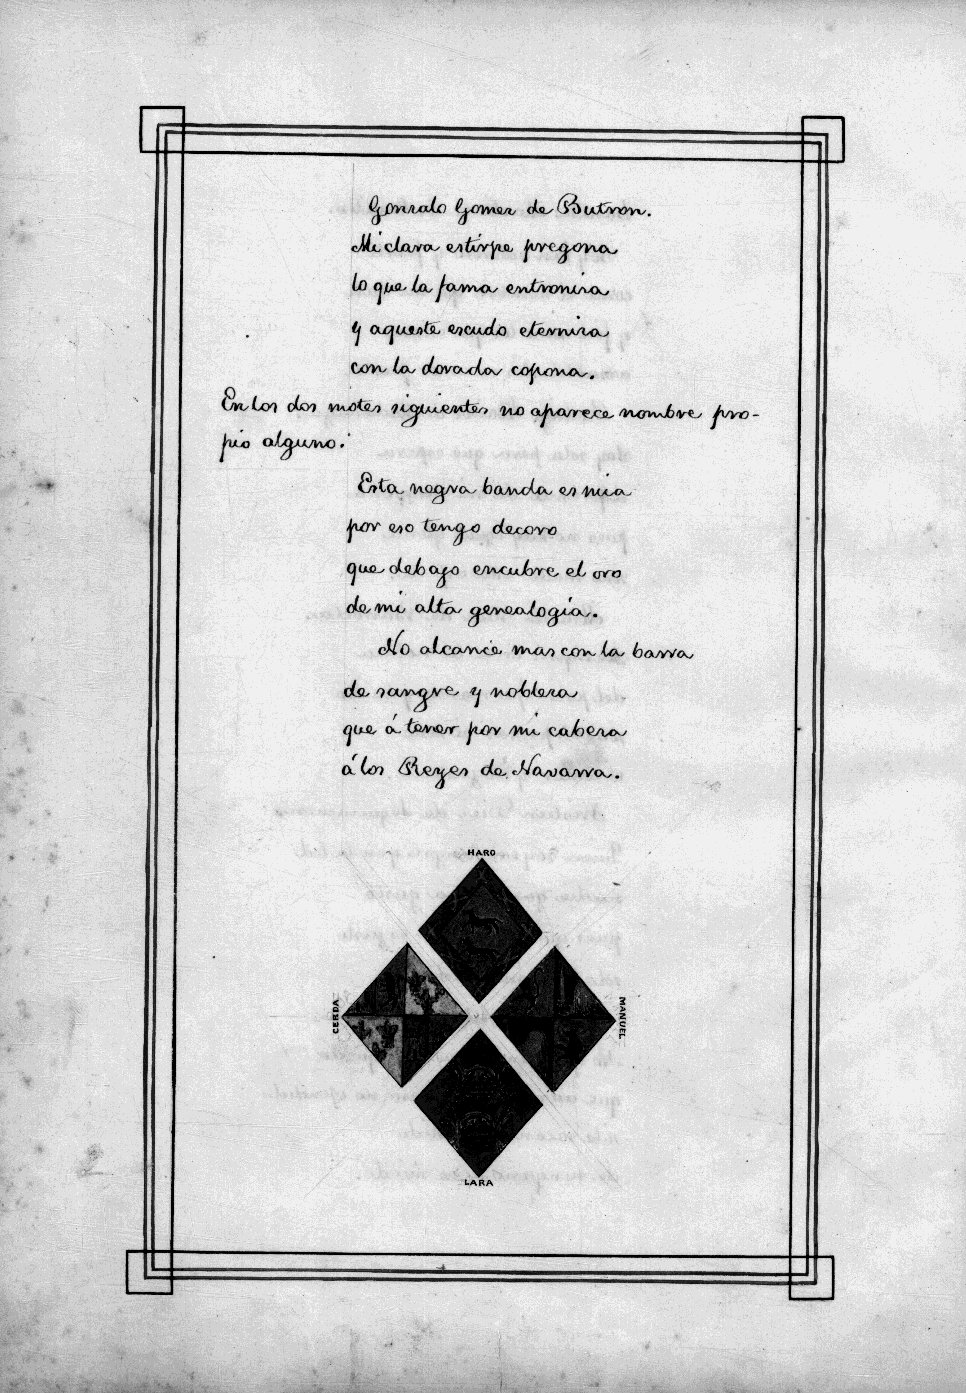 Gonzalo Gomez de Butron.
Mi clara estirpe pregona
lo que la fama entroniza
y aqueste escudo eterniza
con la dorada copona.
En los dos motes siguientes no aparece nombre pro-
pio alguno.
Esta negra banda es mia
por eso tengo decoro
que debajo encubre el oro
de mi alta genealogía.
No alcancé mas con la barra
de sangre y nobleza
que á tener por mi cabeza
á los Reyes de Navarra.
HARO
CERDA
MANUEL
LARA